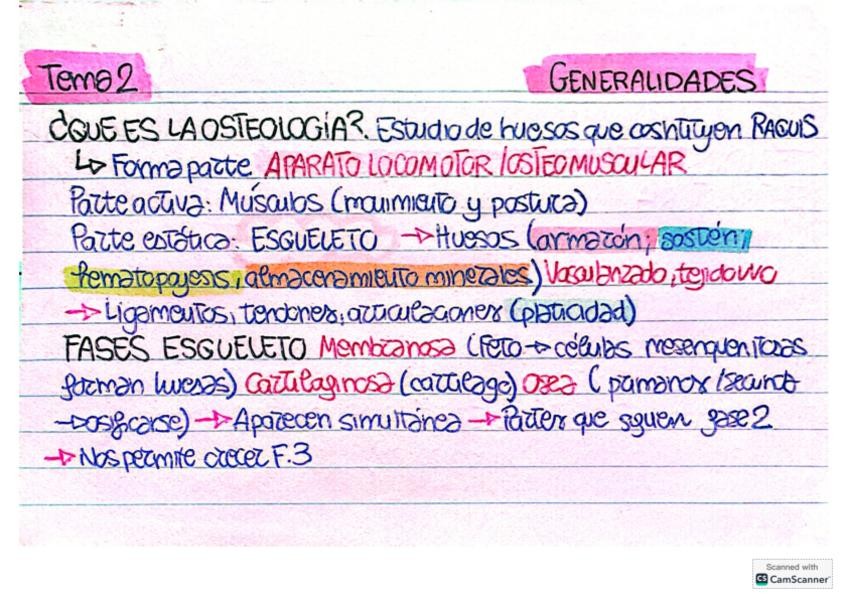 Tema 2 GENERALIDADES
¿QUE ES LA OSTEOLOGIA?. Estudio de huesos que constituyen RAQUIS
↳ Forma parte APARATO LOCOMOTOR /OSTEOMUSCULAR
Parte activa: Músculos (movimiento y postura)
Parte estática: ESQUELETO → Huesos (armazón, sostén,
hematopoyesis, almacenamiento minerales) Vascularizado, tejido vivo
→ Ligamentos, tendones, articulaciones (plasticidad)
FASES ESQUELETO Membranosa (Feto → células mesenquenitozas
forman huesos) Cartilaginosa (cartílago) Osea (
→ osificarse) → Aparecen simultánea → Partes que siguen fase 2
→ Nos permite crecer F.3
Scanned with
CS CamScanner